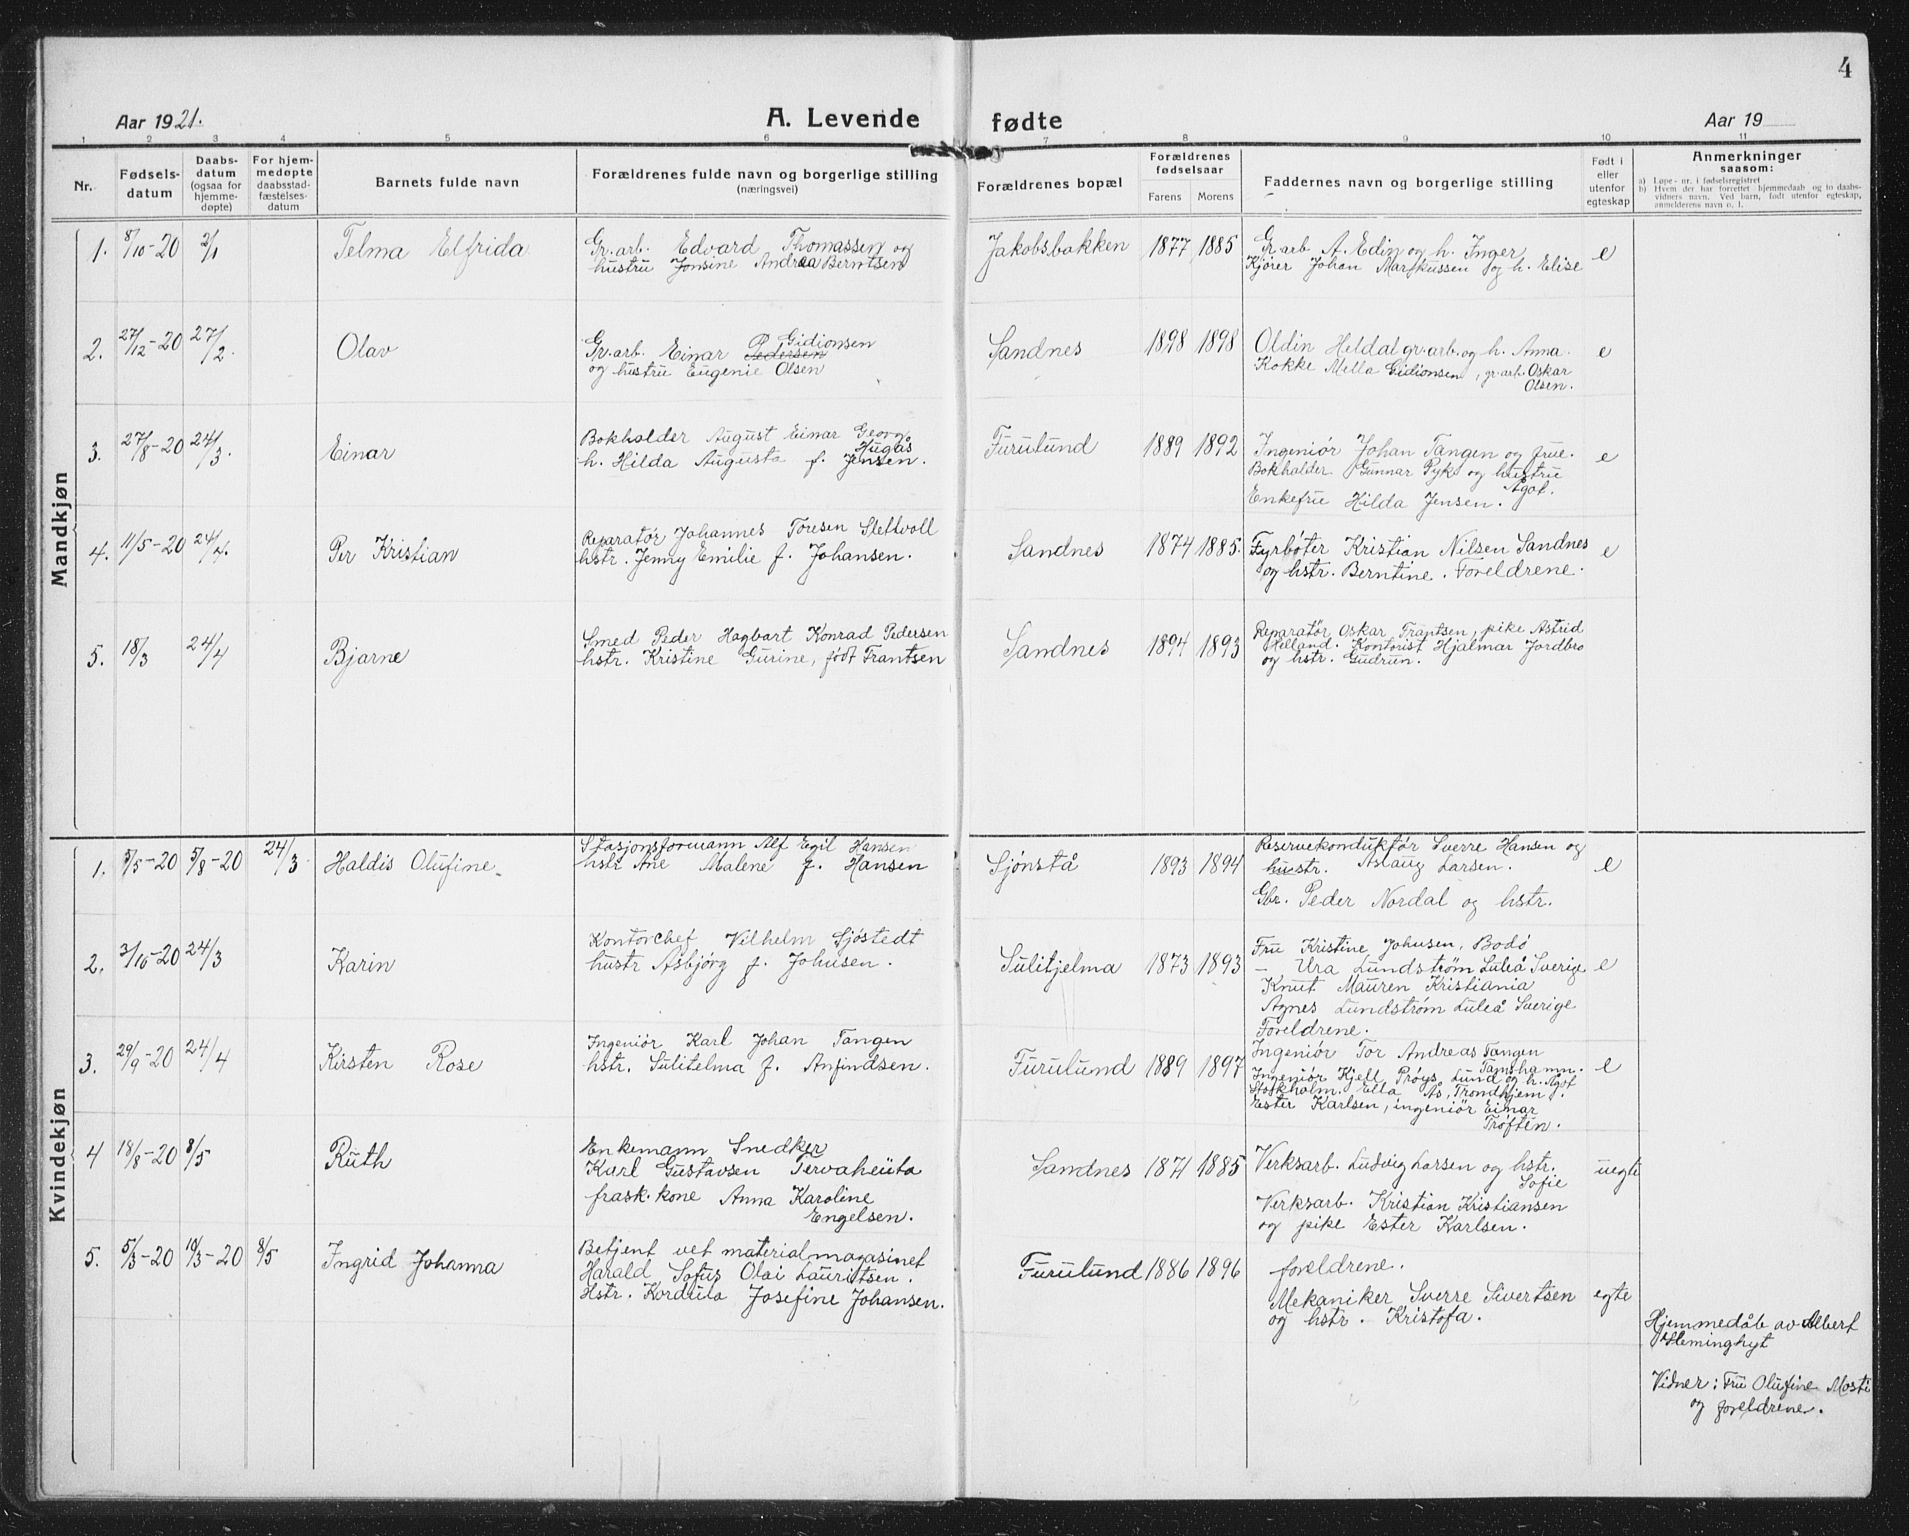 4
Aar 1921.
A. Levende fødte
Aar 19
1 2 3 4 5 6 7 8 9 10 11
Nr.
Fødsels-
datum
Daabs-
datum
(ogsaa for
hjemme-
døpte)
For hjem-
medøpte
daabsstad-
fæstelses-
datum
Barnets fulde navn
Forældrenes fulde navn og borgerlige stilling
(næringsvei)
Forældrenes bopæl
Forældrenes
fødselsaar
Farens Morens
Faddernes navn og borgerlige stilling
Født i
eller
utenfor
egteskap
Anmerkninger
saasom:
a) Løpe-nr. i fødselsregistret
b) Hvem der har forrettet hjemmedaab og to daabs-
vidners navn. Ved barn, født utenfor egteskap,
anmelderens navn o. l.
Mandkjøn
1. 8/10-20 2/1 Telma Elfrida
Gr. arb. Edvard Thomassen og
hustru Jonsine Andrea Berntsen
Jakobsbakken 1877 1885
Gr. arb A. Edin og h. Inger
Kjører Johan Markussen og h. Elise
e
2. 27/12-20 27/2. Olav
Gr. arb. Einar P. Gidionsen
Pedersen
og hustru Eugenie Olsen
Sandnes 1898 1898
Oldin Heldal gr. arb. og h. Anna.
Kokke Mella Gidionsen, gr. arb. Oskar
Olsen.
e
3. 27/8-20 24/3. Einar
Bokholder August Einar Georg
Hugås
h. Hilda Augusta f. Jensen.
Furulund 1889 1892
Ingeniør Johan Tangen og frue.
Bokholder Gunnar Pyk og hustrue
Ågot.
Enkefrue Hilda Jensen.
e
4. 11/5-20 24/4. Per Kristian
Reparatør Johannes Toresen Stettvoll
hstr. Jenny Emilie f. Johansen.
Sandnes 1874 1885.
Fyrbøter Kristian Nilsen Sandnes
og hstr. Berntine. Foreldrene.
e
5. 18/3 24/4 Bjarne
Smed Peder Hagbart Konrad Pedersen
hstr. Kristine Gurine, født Frantsen
Sandnes 1894 1893
Reparatør Oskar Frantsen, pike Astrid
Helland. Kontorist Hjalmar Jordbro
og hstr. Gudrun.
Kvindekjøn
1. 5/5-20 5/8-20 24/3 Haldis Olufine
Stasjonsformann Alf Egil Hansen
hstr Ane Malene f. Hansen
Sjønstå 1893 1894
Reservekonduktør Sverre Hansen og
hustr. Aslaug Larsen.
Gbr. Peder Nordal og hstr.
e
2. 3/10-20 24/3 Karin
Kontorchef Vilhelm Sjøstedt
hustr Asbjørg f. Johnsen.
Sulitjelma 1873 1893
Fru Kristine Johnsen, Bodø
- Ura Lundstrøm Luleå Sverige
Knut Mauren Kristiania
Agnes Lundstrøm Luleå Sverige
Foreldrene.
e
3. 29/9-20 24/4 Kirsten Rose
Ingeniør Karl Johan Tangen
hstr. Sulitelma f. Anfindsen.
Furulund 1889 1897
Ingeniør Tor Andreas Tangen
Tamshamn.
Ingeniør Kjell Prøys Lund og h. Ågot
Stokholm. Ella Ås, Trondhjem f.
Ester Karlsen, ingeniør Einar
Trøften.
e
4 18/8-20 8/5 Ruth
Enkemann Snedker
Karl Gustavsen Tervaheuta
frask. kone Anna Karoline
Engelsen.
Sandnes 1871 1885
Verksarb. Ludvig Larsen og hstr.
Sofie
Verksarb. Kristian Kristiansen
og pike Ester Karlsen.
uegte
5. 5/3-20 19/3-20 8/5 Ingrid Johanna
Betjent vet materialmagasinet
Harald Sofus Olai Lauritsen.
Hstr. Kordula Josefine Johansen.
Furulund 1886 1896
foreldrene.
Mekaniker Sverre Sivertsen
og hstr. Kristofa.
egte
Hjemmedåb av Albert
Fleminghyt
Vidner: Fru Olufine Mosti
og foreldrene.